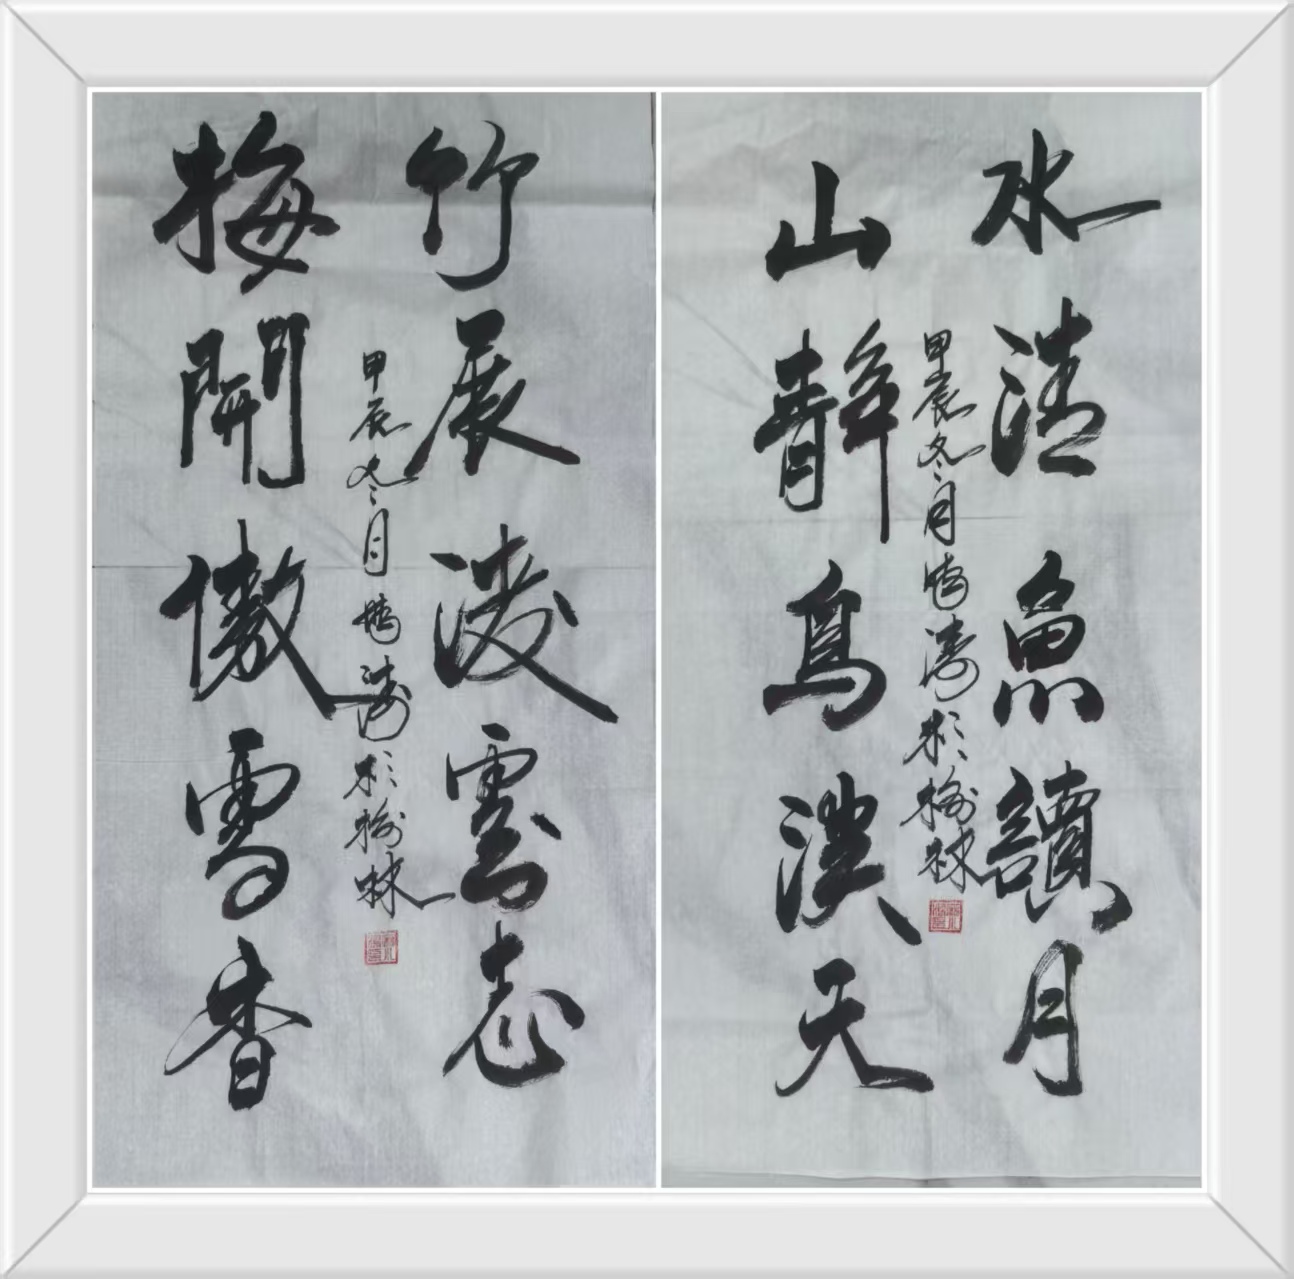 水清魚讀月
山静鳥漢天
甲辰冬月濤於榆林
竹展淩雲志
梅開傲雪香
甲辰冬月濤於榆林